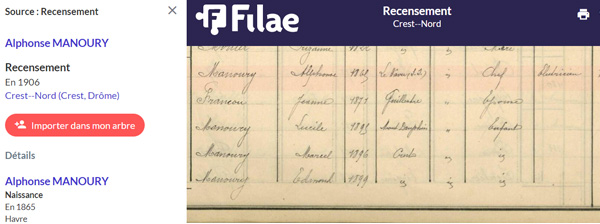 Source : Recensement
Alphonse MANOURY
Recensement
En 1906
Crest--Nord (Crest, Drôme)
Importer dans mon arbre
Détails
Alphonse MANOURY
Naissance
En 1865
Havre
Filae
Recensement
Crest--Nord
Manoury Alphonse 1865 Le Havre (S.I.) " Chef
Françou Jeanne 1871 Guillestre " épouse
Manoury Lucile 1893 " enfant
Manoury Marcel 1896 Crest " id
Manoury Edmond 1899 id " id